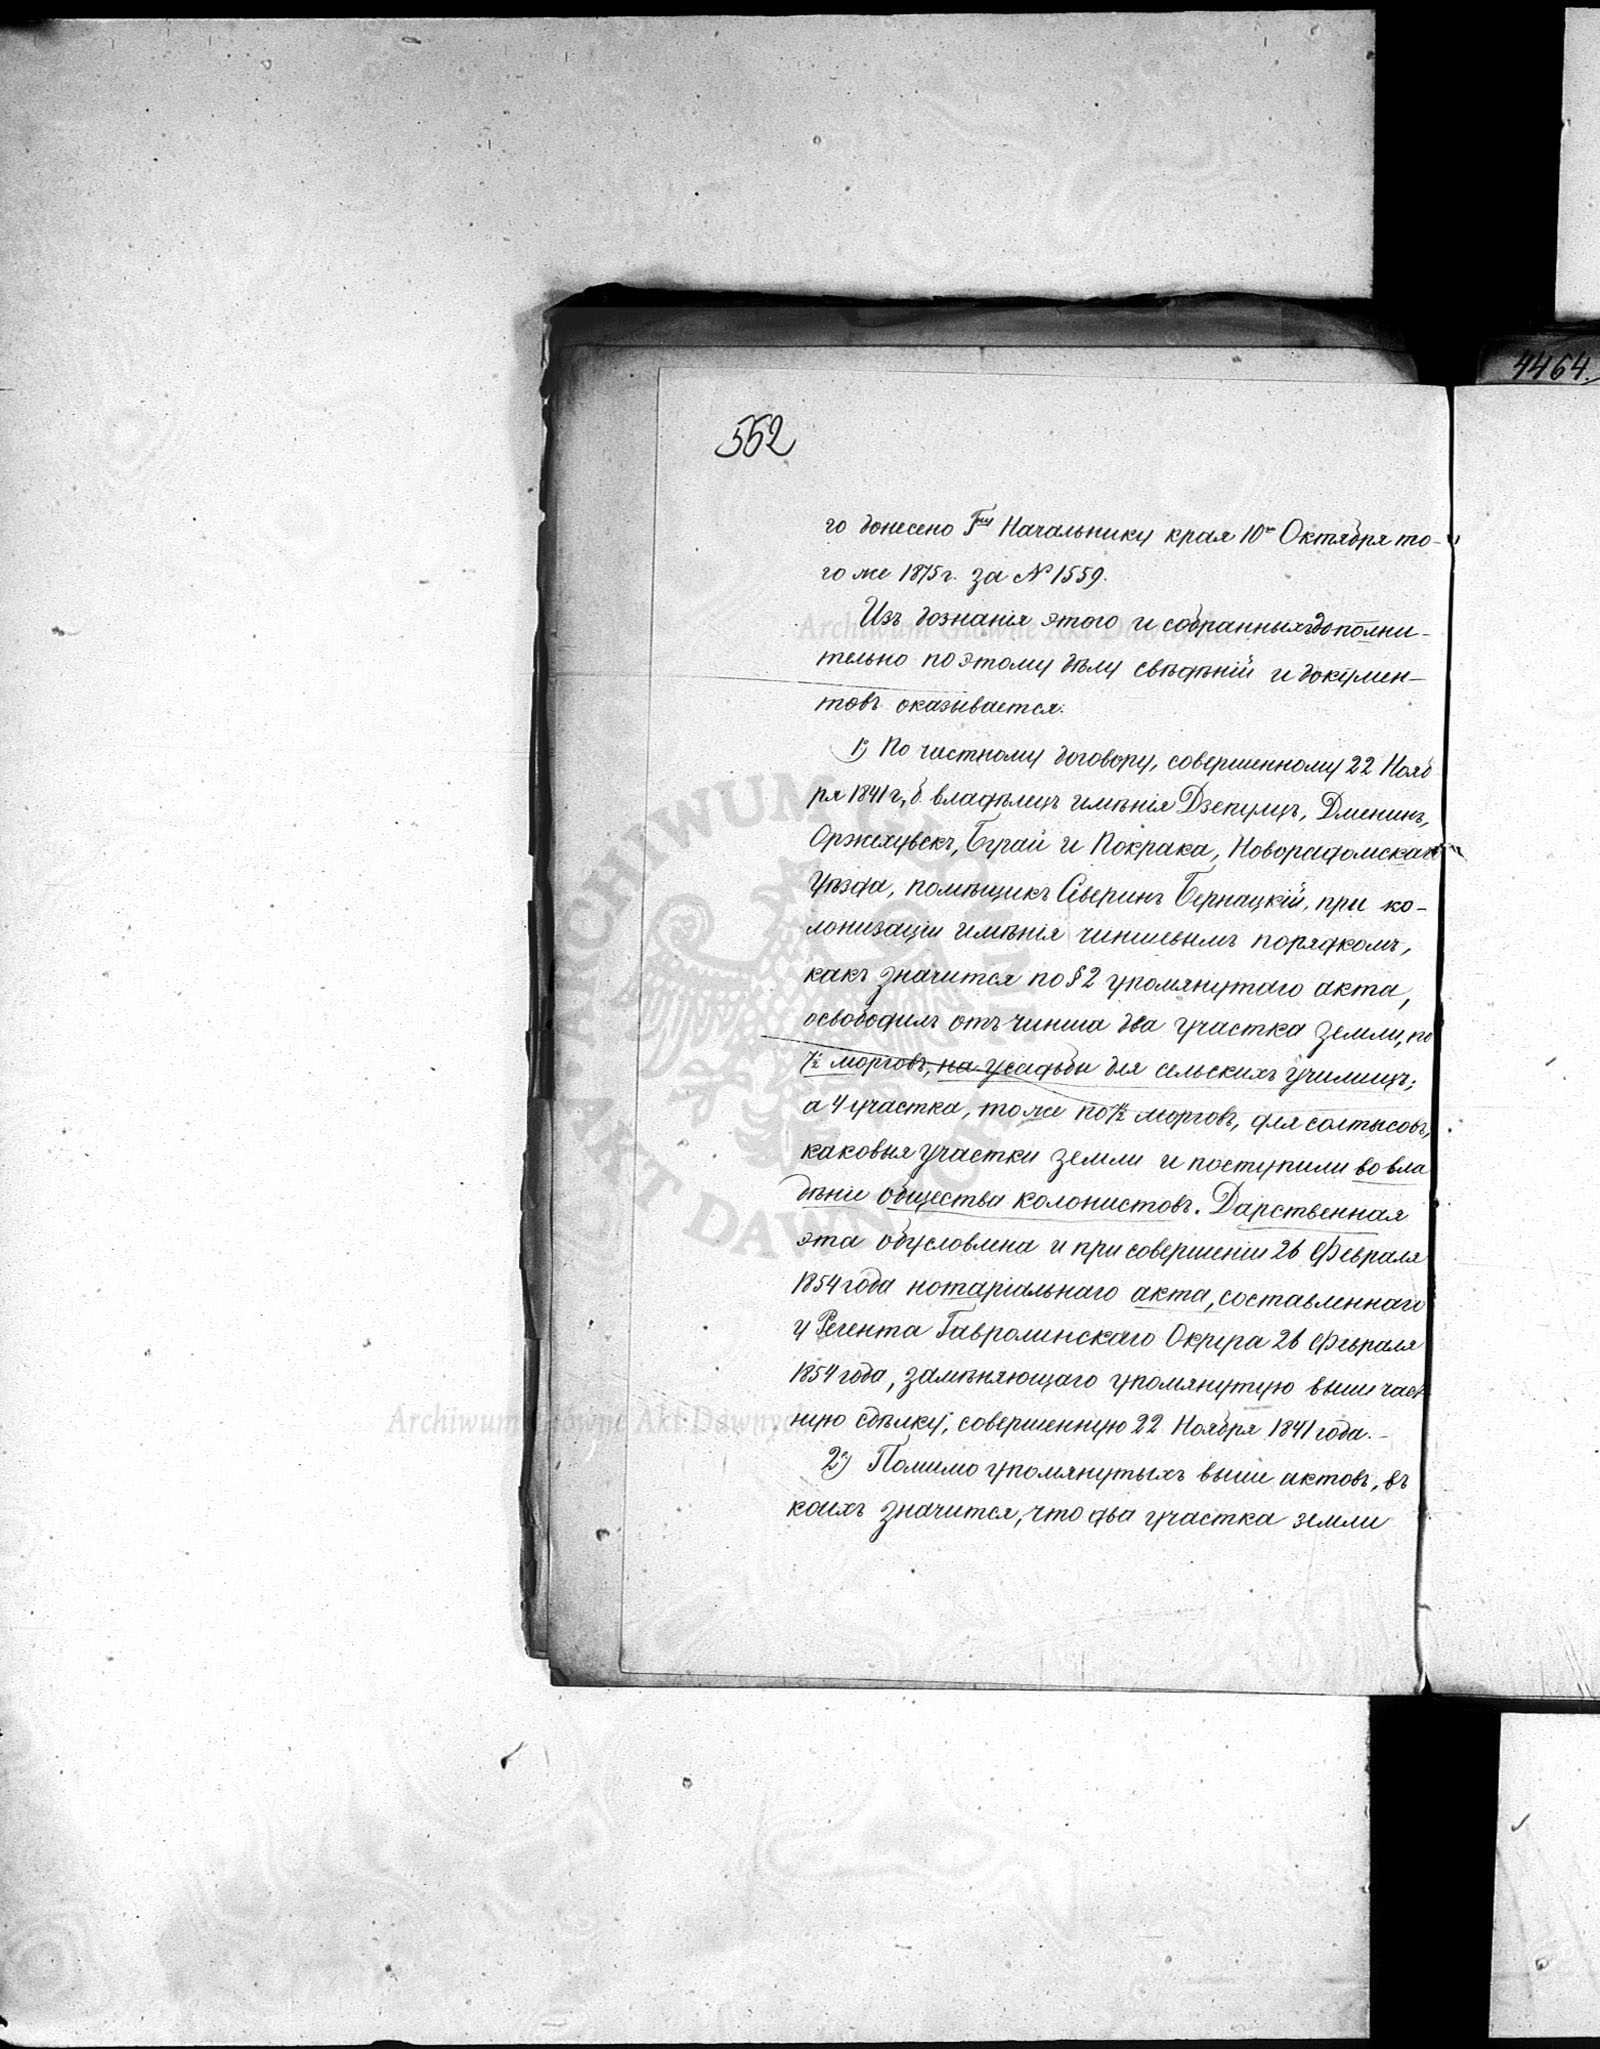 4464.
552
го донесено Г^ну Начальнику края 10^го Октября то-
го же 1875 г. за № 1559.
Изъ дознанія этого и собранныхъ дополни-
тельно по этому дѣлу свѣдѣній и докумен-
товъ оказывается:
1) По частному договору, совершенному 22 Нояб
ря 1841 г., б. владѣлецъ имѣнія Дзепулць, Дменинъ,
Оржехувекъ, Бугай и Покрака, Новорадомскаго
Уѣзда, помѣщикъ Северинъ Бернацкій, при ко-
лонизаціи имѣнія чиншевымъ порядкомъ,
какъ значится по § 2 упомянутаго акта,
освободилъ отъ чинша два участка земли, по
7½ морговъ, на усадьбы для сельскихъ училищъ;
а 4 участка, тоже по 7½ морговъ, для солтысовъ,
каковыя участки земли и поступили во вла
дѣніе общества колонистовъ. Дарственная
эта обусловлена и при совершеніи 26 Февраля
1854 года нотаріальнаго акта, составленнаго
у Регента Округа 26 Февраля
1854 года, замѣняющаго упомянутую выше част
ную сдѣлку, совершенную 22 Ноября 1841 года.-
2) Помимо упомянутыхъ выше актовъ, въ
коихъ значится, что два участка земли
Archiwum Główne Akt Dawnych
ARCHIWUM GŁÓWNE AKT DAWNYCH
Archiwum Główne Akt Dawnych